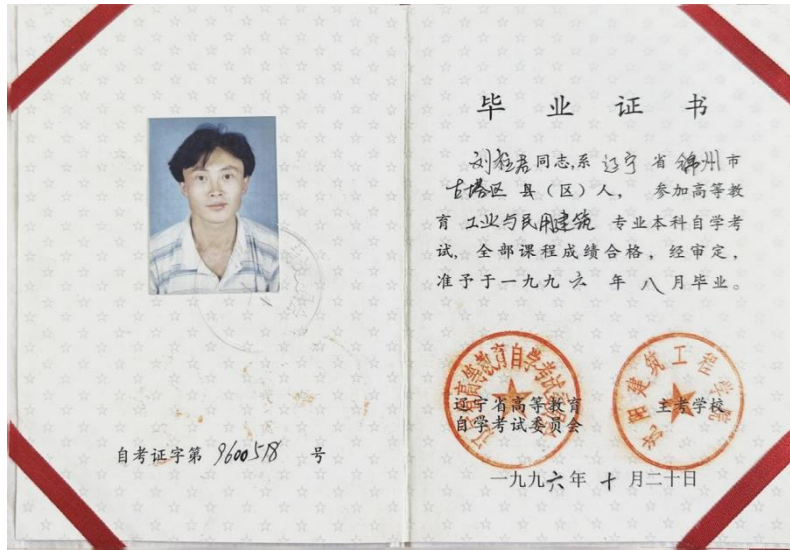 自考证字第 9600518 号
毕业证书
刘桂君同志,系 辽宁 省 锦州 市
古塔区 县（区）人， 参加高等教
育 工业与民用建筑 专业本科自学考
试，全部课程成绩合格，经审定，
准予于一九九六 年 八 月毕业。
辽宁省高等教育自学考试委员会
辽宁省高等教育
自学考试委员会
沈阳建筑工程学院
主考学校
一九九六年 十 月二十日